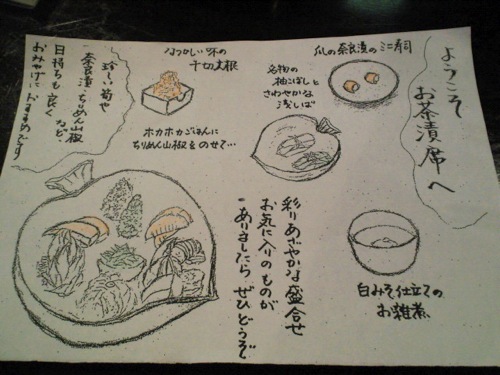 ようこそ
お茶漬席へ
瓜の奈良漬のミニ寿司
名物の
柚こぼしと
さわやかな
浅しば
なつかしい味の
千切大根
ホカホカごはんに
ちりめん山椒をのせて…
珍しい筍や
奈良漬・ちりめん山椒
など
日持ちも良く
おみやげにおすすめです
彩りあざやかな盛合せ
お気に入りのものが
ありましたら ぜひどうぞ
白みそ仕立ての
お雑煮